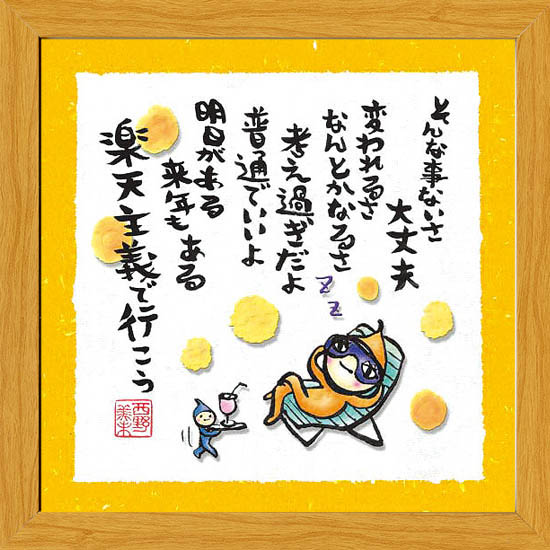 そんな事ないさ
大丈夫
変われるさ
なんとかなるさ
考え過ぎだよ
普通でいいよ
明日がある
来年もある
楽天主義で行こう
z
z
西野
美未